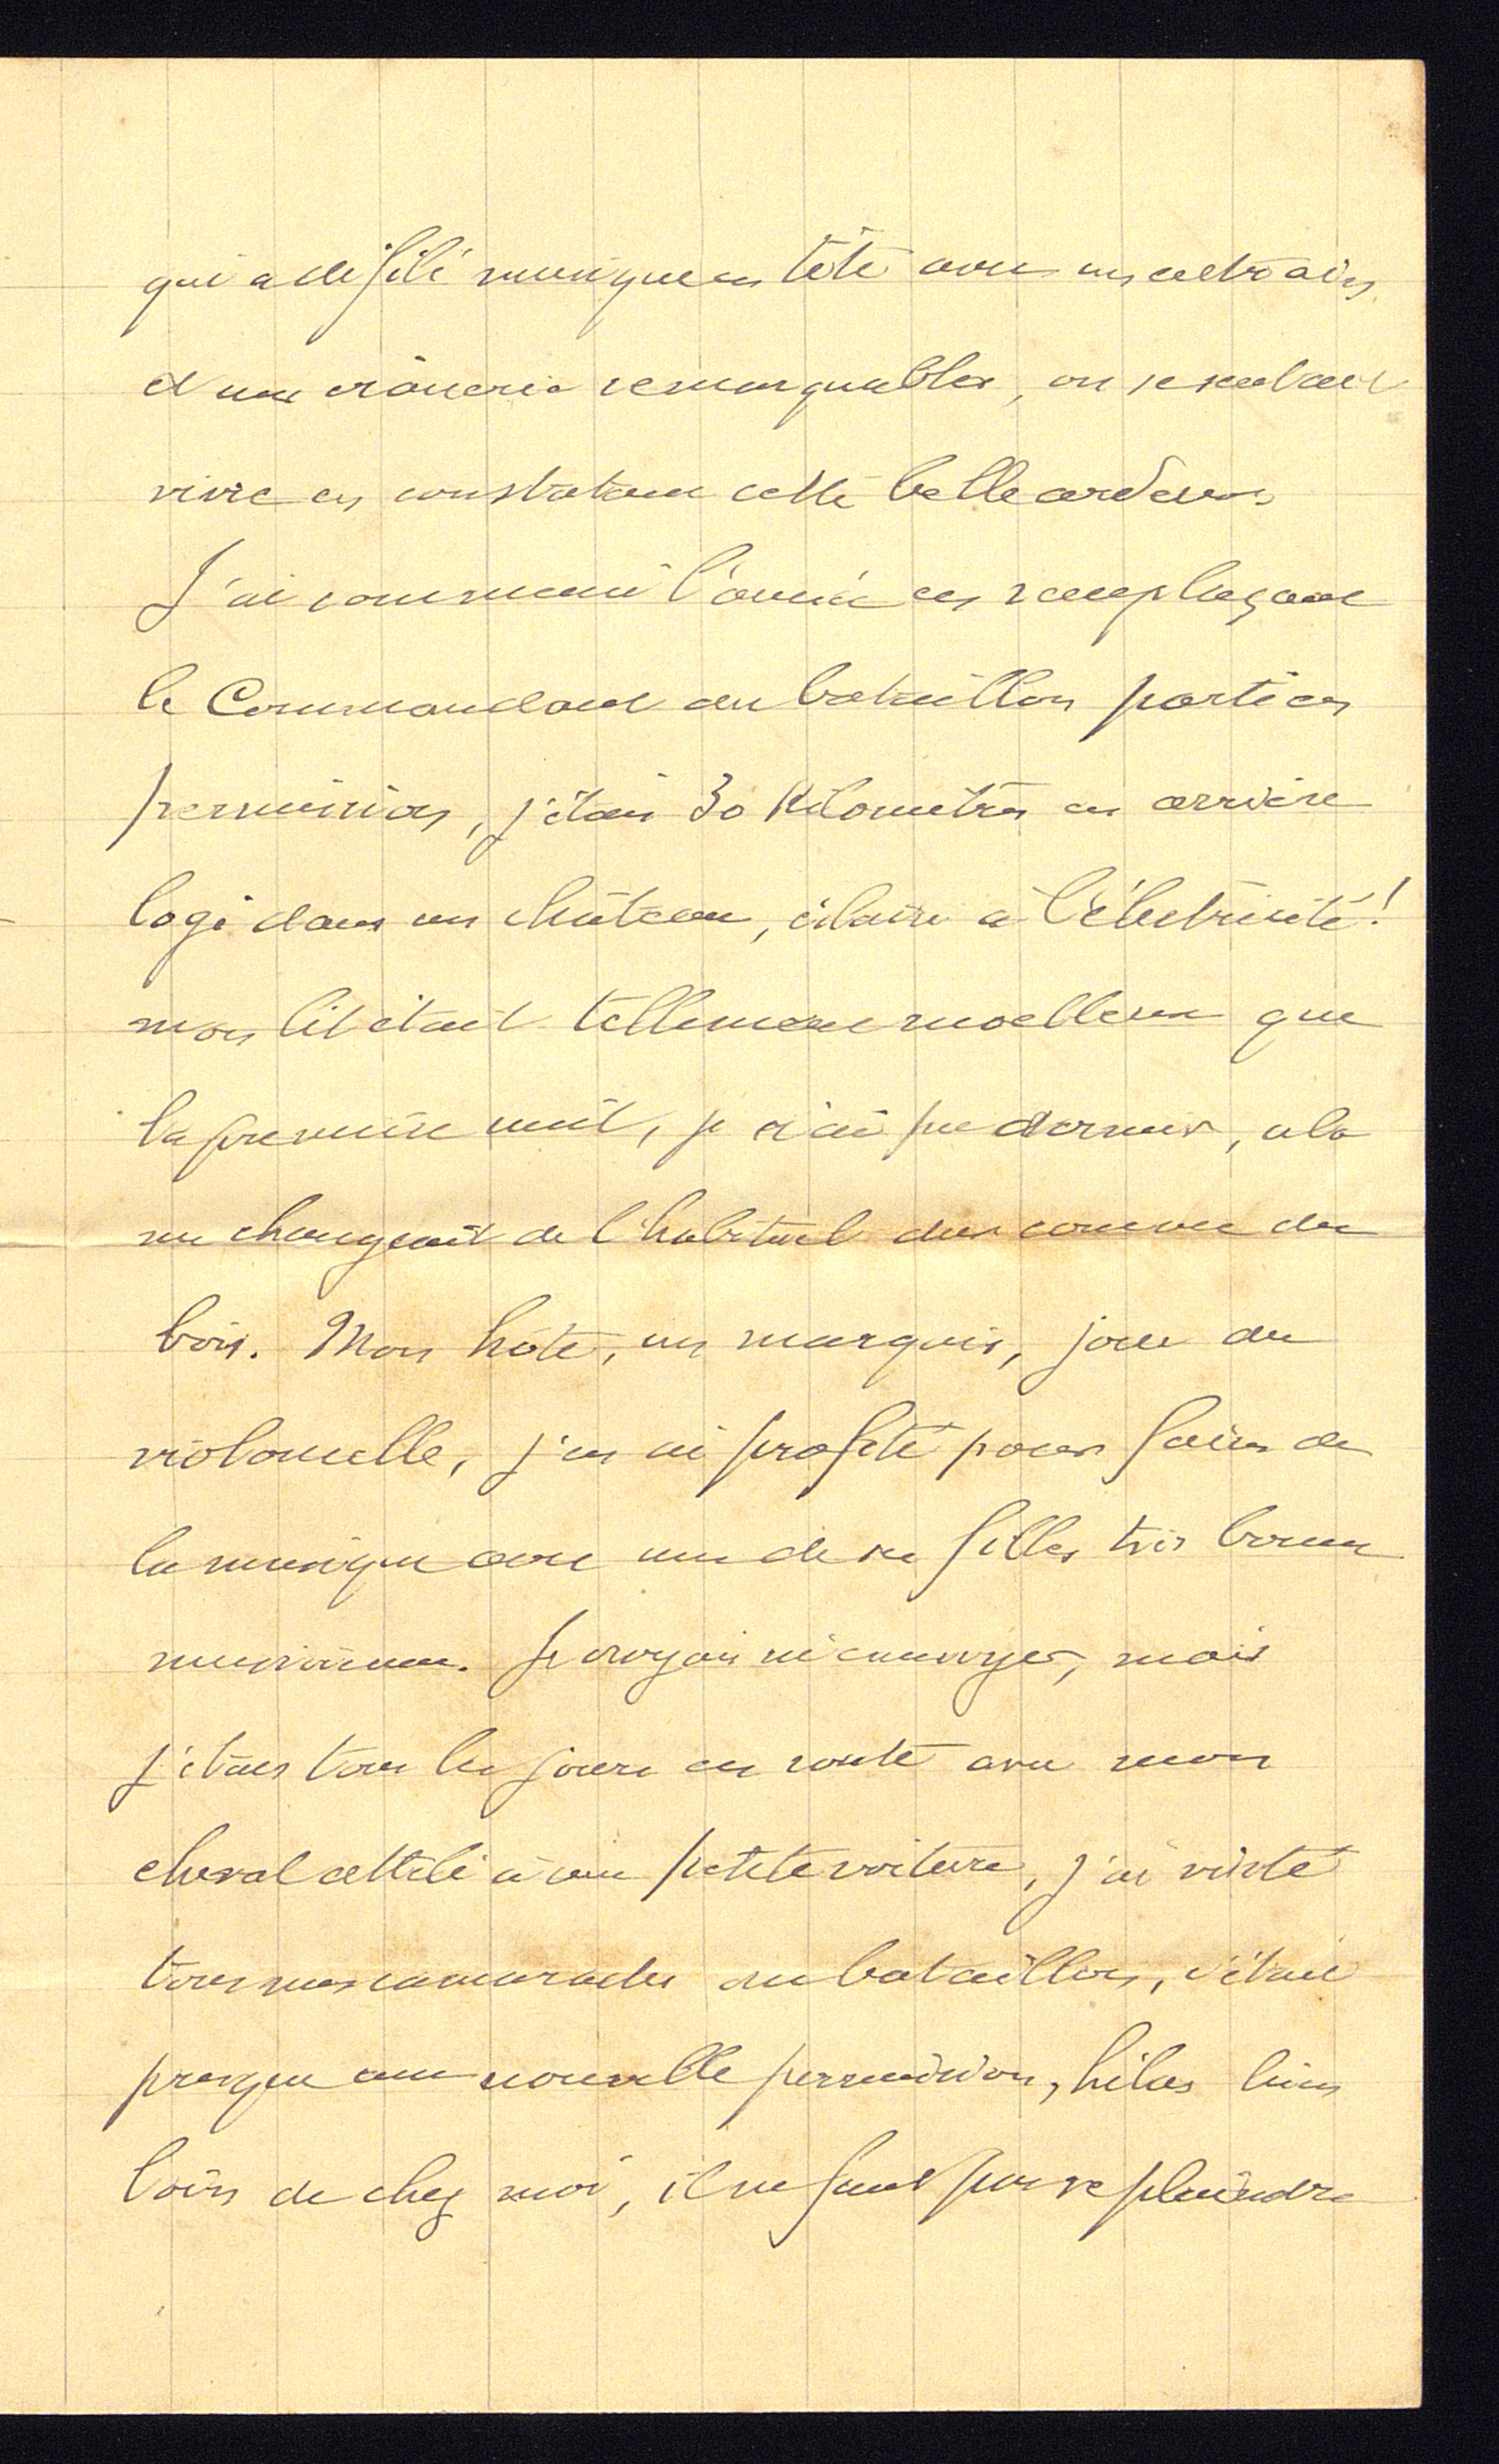 qui a défilé musique en tête avec un entrain
et une crânerie remarquables, on se sentait
vivre en constatant cette belle ardeur.
J'ai commencé l'année en remplaçant
le Commandant du bataillon parti en
permission, j'étais 30 Kilomètres en arrière
logé dans un château, éclairé à l'électricité!
mon lit était tellement moelleux que
la première nuit, je n'ai pu dormir, cela
me changeait de l'habituel dur comme du
bois. Mon hôte, un marquis, joue du
violoncelle, j'en ai profité pour faire de
la musique avec une de ses filles très bonne
musicienne. Je croyais m'ennuyer, mais
j'étais tous les jours en route avec mon
cheval attelé à une petite voiture, j'ai visité
tous mes camarades du bataillon, c'était
presque une nouvelle permission, hélas bien
loin de chez moi, il ne faut pas se plaindre